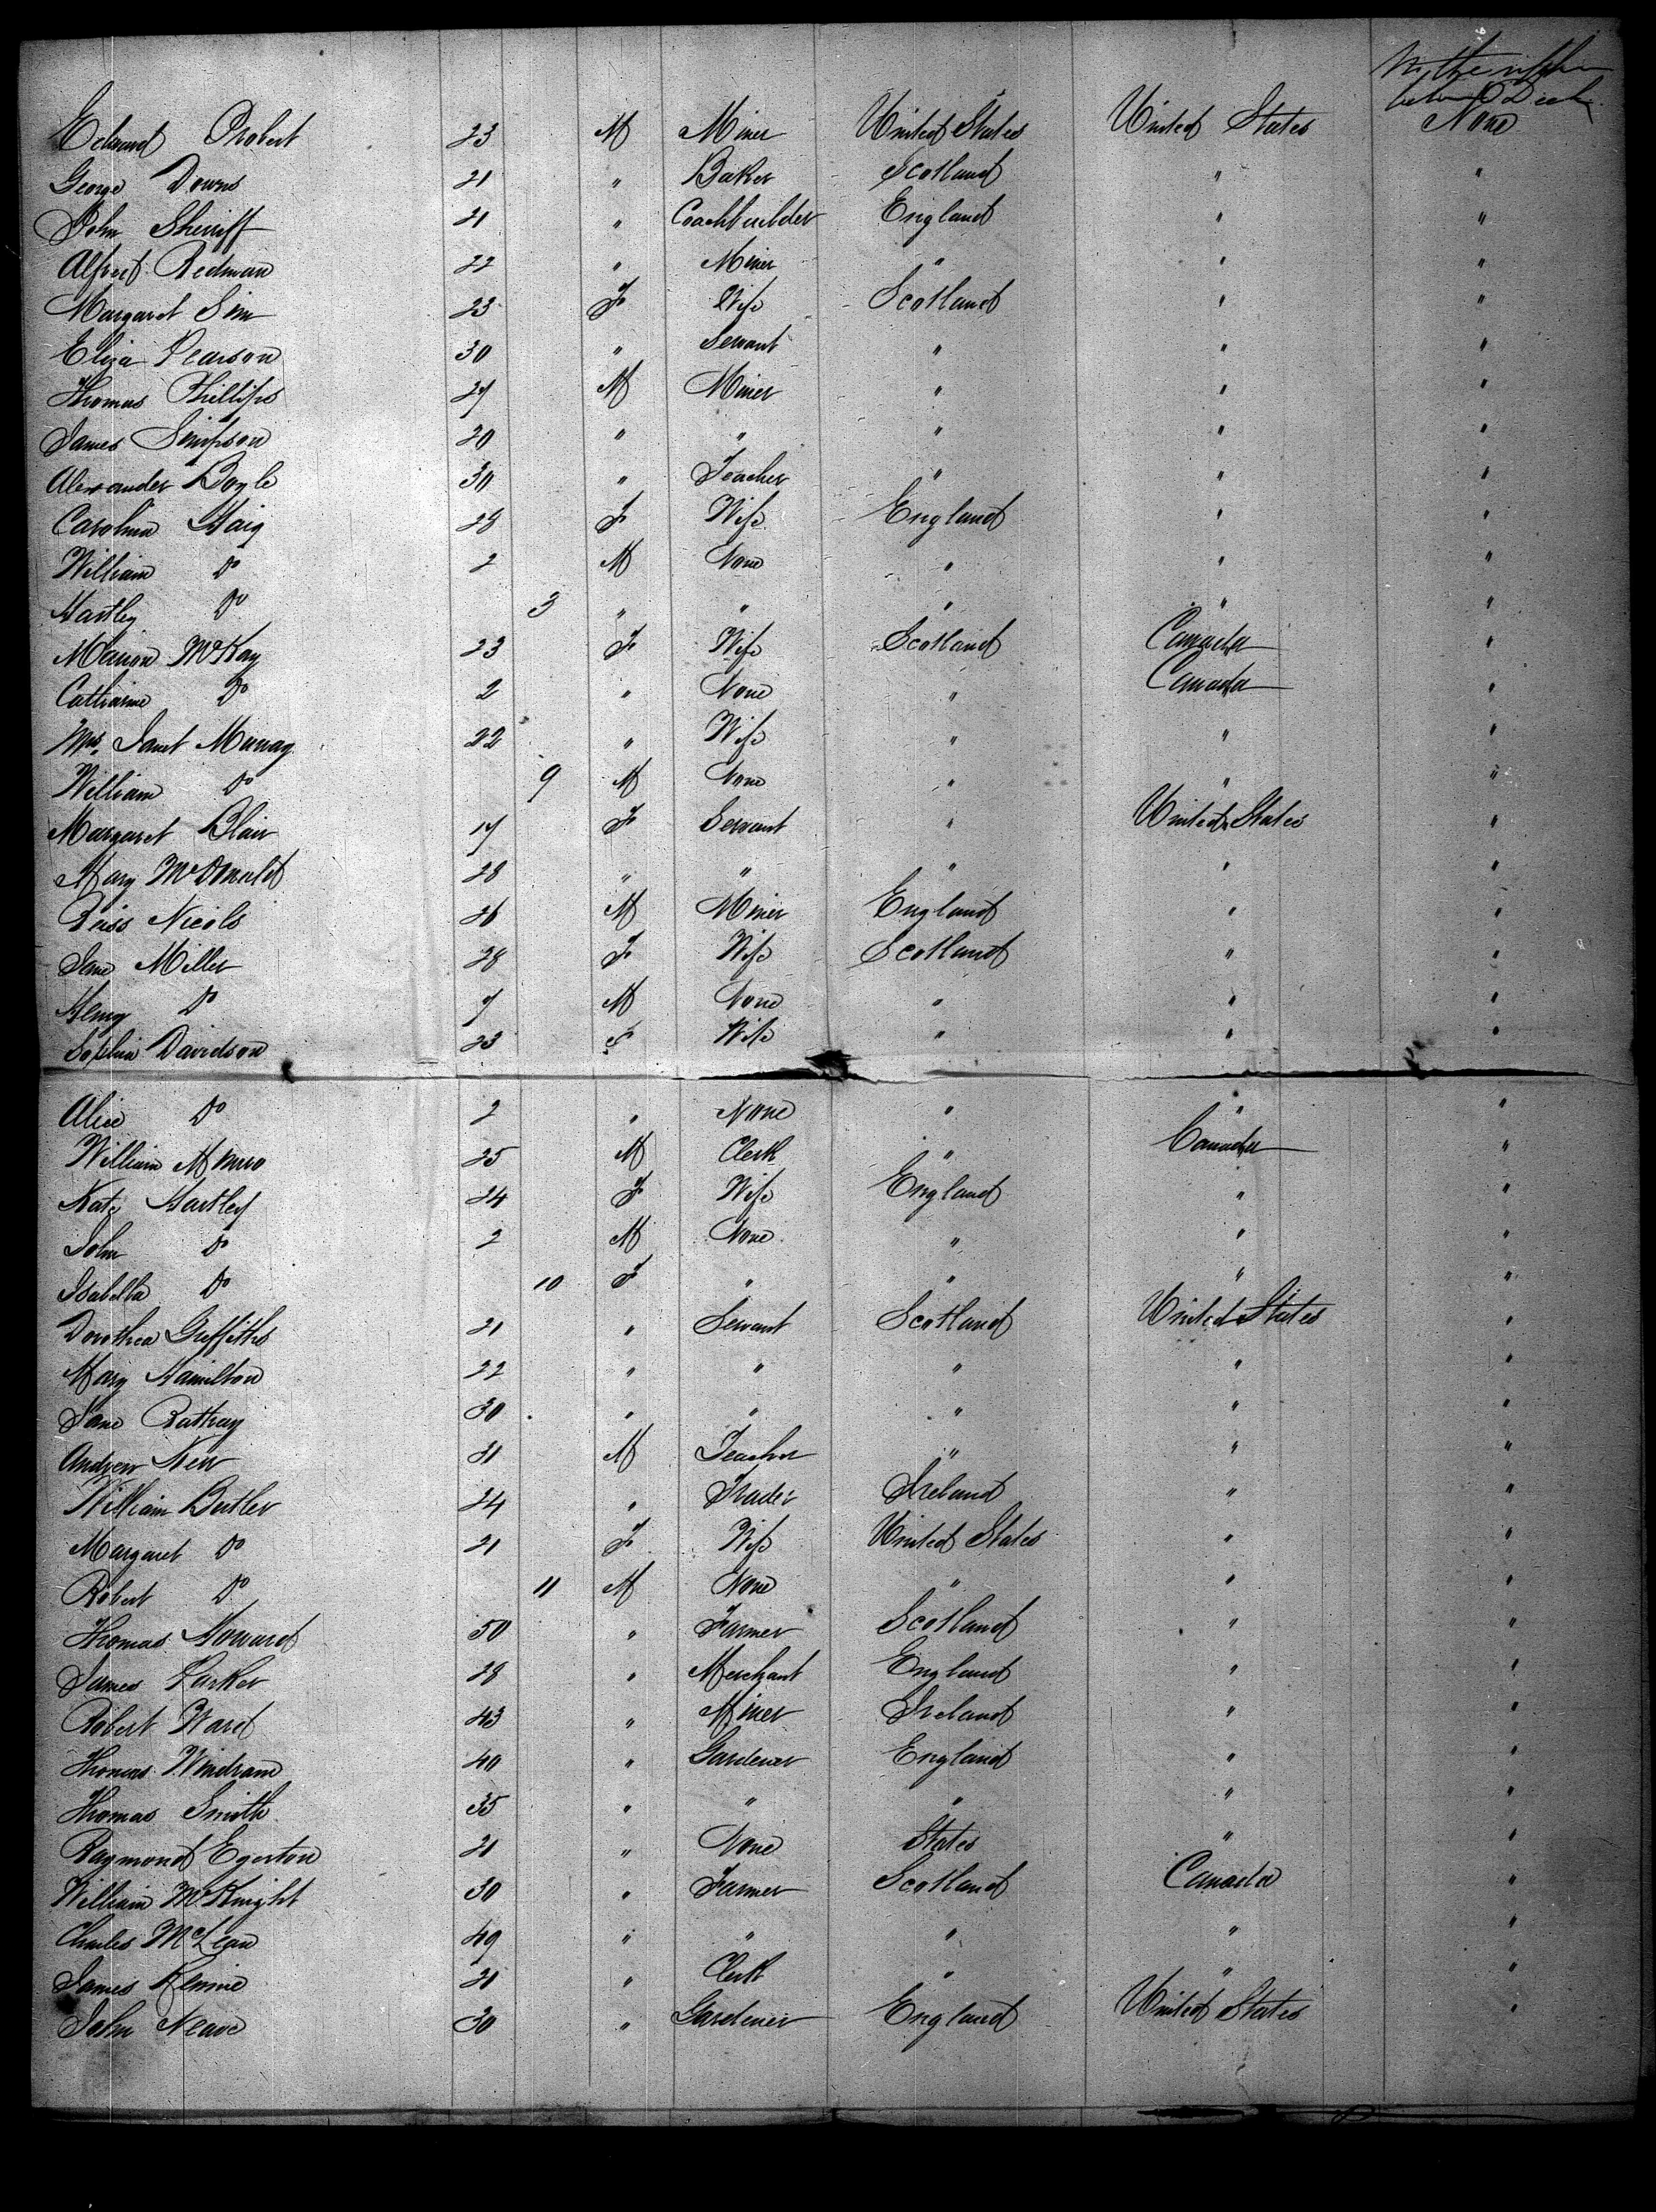 between Decks
Edward Probert 23 M Miner United States United States None
George Downs 21 " Baker Scotland " "
John Sherriff 21 " Coachbuilder England " "
Alfred Redman 22 " Miner " " "
Margaret Sim 23 F Wife Scotland " "
Eliza Pearson 30 " Servant " " "
Thomas Phillips 27 M Miner " " "
James Simpson 20 " " " " "
Alexander Boyle 30 " Teacher " " "
Carolina Haig 28 F Wife England " "
William Do 2 M None " " "
Hartley Do 3 " " " " "
Marion McKay 23 F Wife Scotland Canada "
Catharine Do 2 " None " Canada "
Mrs. Janet Murray 22 " Wife " " "
William Do 9 M None " " "
Margaret Blair 17 F Servant " United States "
Mary McDonald 28 " " " " "
Nicols 26 M Miner England " "
Jane Miller 28 F Wife Scotland " "
Henry Do 7 M None " " "
Sophia Davidson 23 F Wife " " "
Alice Do 2 " None " " "
William Munro 25 M Clerk " Canada "
Kate Hartley 24 F Wife England " "
John Do 2 M None " " "
Isabella Do 10 F " " " "
Dorothea Griffiths 21 " Servant Scotland United States "
Mary Hamilton 22 " " " " "
Jane Rattray 30 " " " " "
Andrew Kerr 31 M Teacher " " "
William Butler 24 " Trader Ireland " "
Margaret Do 21 F Wife United States " "
Robert Do 11 M None " " "
Thomas Howard 50 " Farmer Scotland " "
James Parker 28 " Merchant England " "
Robert Ward 43 " Miner Ireland " "
Thomas Windram 40 " Gardener England " "
Thomas Smith 35 " " " " "
Raymond Egerton 21 " None States " "
William McKnight 30 " Farmer Scotland Canada "
Charles McLean 49 " " " " "
James Rennie 21 " Clerk " " "
John Neave 30 " Gardener England United States "